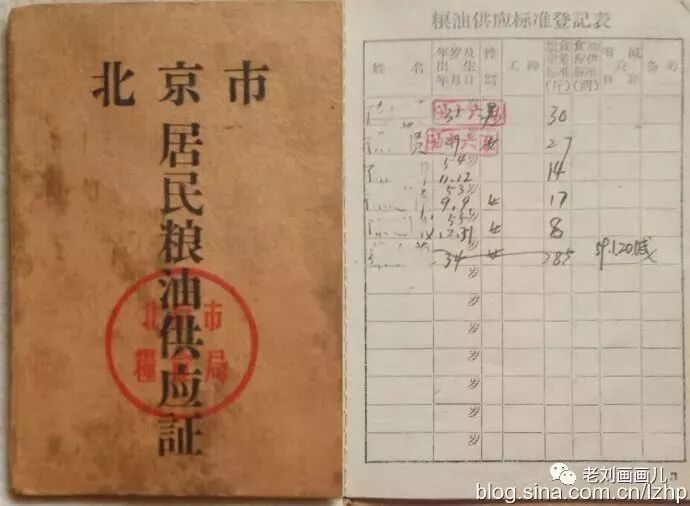 北京市
居民粮油供应証
北京市
糧食局
粮油供应标准登記表
姓名
年岁及出生年月日
性別
工种
粮食定量标准(斤)
食油供应标准(两)
增減及日期
备考
30
女
27
54岁
11.12
14
53岁
9.9 女
17
55岁
12.31 女
8
34 女
285
59.1.20減
岁
岁
岁
岁
岁
岁
岁
3
老刘画画儿
blog.sina.com.cn/lzhp